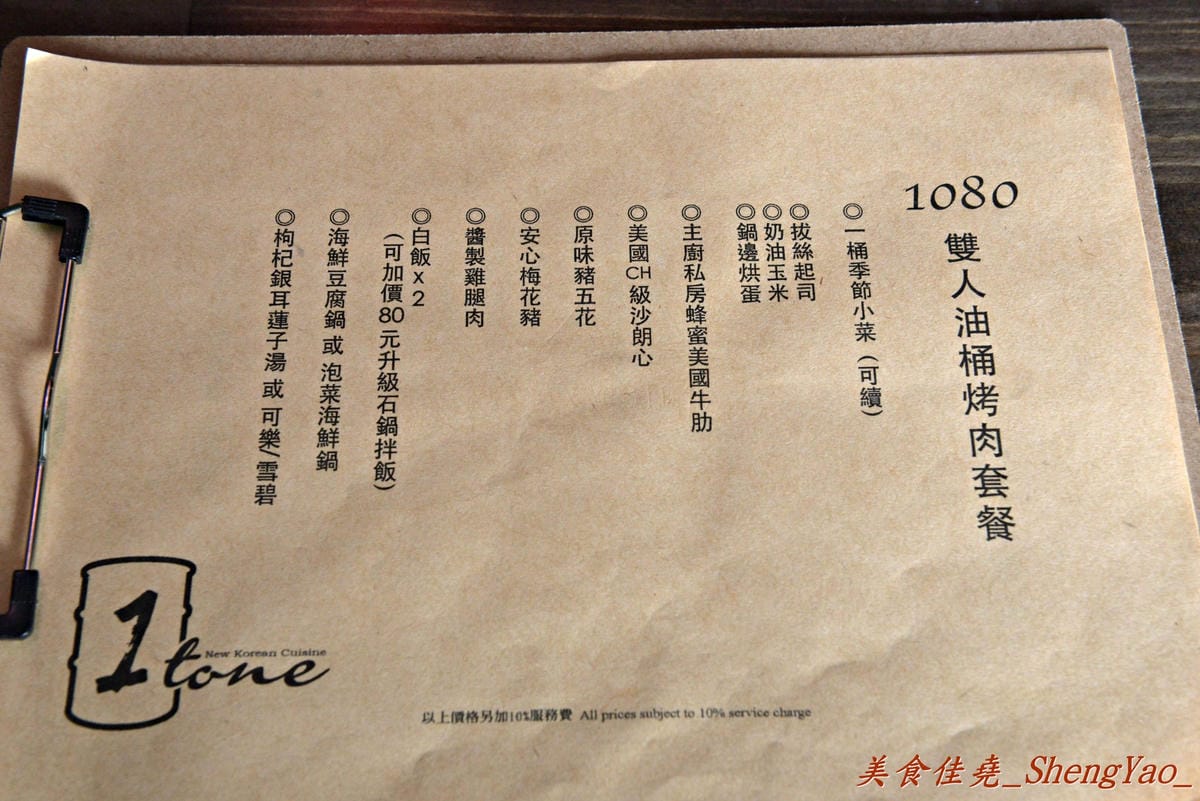 1080
雙人油桶烤肉套餐
◎一桶季節小菜（可續）
◎拔絲起司
◎奶油玉米
◎鍋邊烘蛋
◎主廚私房蜂蜜美國牛肋
◎美國CH級沙朗心
◎原味豬五花
◎安心梅花豬
◎醬製雞腿肉
◎白飯x2
（可加價80元升級石鍋拌飯）
◎海鮮豆腐鍋 或 泡菜海鮮鍋
◎枸杞銀耳蓮子湯 或 可樂/雪碧
1tone
New Korean Cuisine
以上價格另加10%服務費 All prices subject to 10% service charge
美食佳堯_ShengYao_